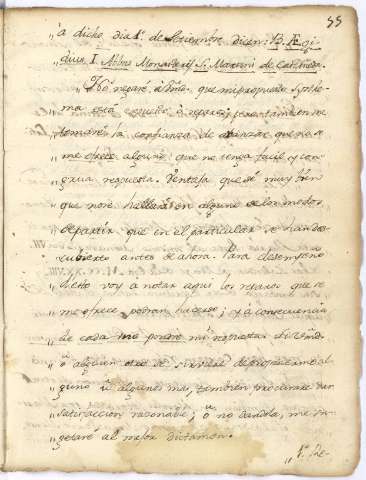 55
„ â dicho dia 1.º de Setiembre dicen: B. Ægi-
„ dius I. Abbas Monasterij S. Martini de Castañeda.
„ No reparè, ò Sñor, que mi propuesto Systhe-
„ ma està expuesto à reparos; pero tambien me
„ tomarè la confianza de afianzar que no se
„ me ofrece alguno que no tenga facil, y con-
„ grua respuesta. Ventaja que sè muy bien
„ que no se hallarà en alguno de los modos
„ de partir que en el particular se han des-
„ cubierto antes de ahora. Para desempeño
„ de esto voy a notar aqui los reparos que se
„ me ofrece podran hacerse; y a consecuencia
„ de cada uno pondrè mi respuesta:
„ ô alguien
„ guno ù algunos mas, tambien procurarè dar
„ satisfaccion razonable; ô no dandola, me su-
„ getarè al mejor dictamen.
„ 1.º Re-